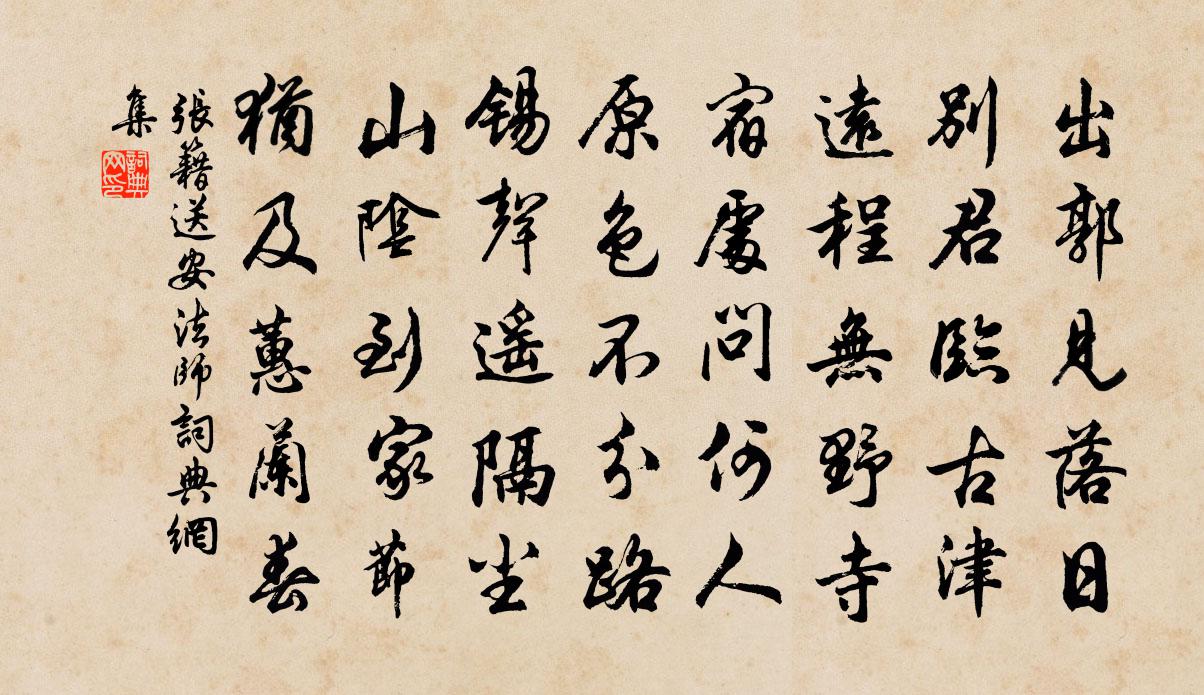 出郭見落日
別君臨古津
遠程無野寺
宿處問何人
原色不分路
錫聲遥隔塵
山陰到家節
猶及蕙蘭春
張籍送安法師詞典網
集
詞典
网印